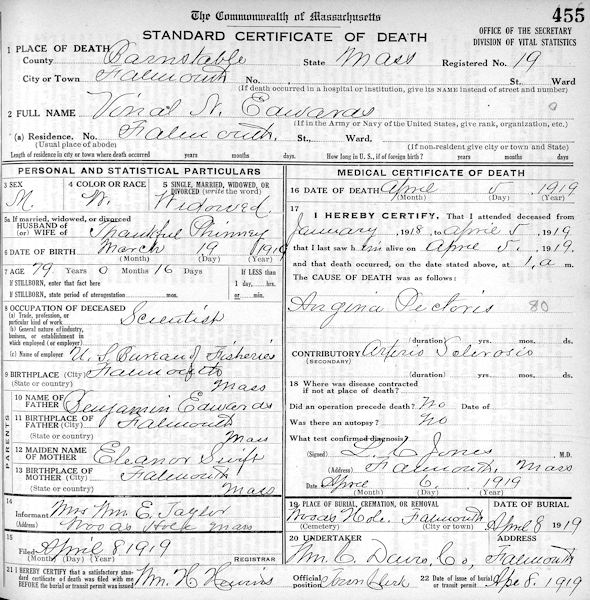 The Commonwealth of Massachusetts
455
STANDARD CERTIFICATE OF DEATH
OFFICE OF THE SECRETARY
DIVISION OF VITAL STATISTICS
1 PLACE OF DEATH
County Barnstable State Mass Registered No. 19
City or Town Falmouth No. St., Ward
(If death occurred in a hospital or institution, give its NAME instead of street and number)
2 FULL NAME Vinal N. Edwards
(If in the Army or Navy of the United States, give rank, organization, etc.)
(a) Residence. No. Falmouth. St., Ward.
(Usual place of abode) (If non-resident give city or town and State)
Length of residence in city or town where death occurred years months days. How long in U. S., if of foreign birth? years months days.
PERSONAL AND STATISTICAL PARTICULARS
3 SEX 4 COLOR OR RACE 5 SINGLE, MARRIED, WIDOWED, OR
DIVORCED (write the word)
M. W. Widowed.
5a If married, widowed, or divorced
HUSBAND of
(or) WIFE of Thankful Phinney
6 DATE OF BIRTH March 19
(Month) (Day) (Year)
7 AGE 79 Years 0 Months 16 Days If LESS than
If STILLBORN, enter that fact here 1 day, hrs.
If STILLBORN, state period of uterogestation mos. or min.
8 OCCUPATION OF DECEASED
(a) Trade, profession, or
particular kind of work Scientist
(b) General nature of industry,
business, or establishment in
which employed (or employer)
(c) Name of employer U. S. Bureau of Fisheries
9 BIRTHPLACE (City) Falmouth
(State or country) Mass
PARENTS
10 NAME OF
FATHER Benjamin Edwards
11 BIRTHPLACE OF
FATHER (City) Falmouth
(State or country) Mass
12 MAIDEN NAME
OF MOTHER Eleanor Swift
13 BIRTHPLACE OF
MOTHER (City) Falmouth
(State or country) Mass
14
Informant Mrs Wm E. Taylor
(Address) Woods Hole Mass
15
Filed April 8 1919
(Month) (Day) (Year) REGISTRAR
MEDICAL CERTIFICATE OF DEATH
16 DATE OF DEATH April 5, 1919
(Month) (Day) (Year)
17
I HEREBY CERTIFY, That I attended deceased from
January, 1918, to April 5, 1919
that I last saw him alive on April 5, 1919.
and that death occurred, on the date stated above, at 1, a m.
The CAUSE OF DEATH was as follows:
Angina Pectoris 80
(duration) yrs. mos. ds.
CONTRIBUTORY Arterio Sclerosis
(SECONDARY)
(duration) yrs. mos. ds.
18 Where was disease contracted
if not at place of death?
Did an operation precede death? No Date of
Was there an autopsy? No
What test confirmed diagnosis?
(Signed) Jones M.D.
(Address) Falmouth, Mass
Date April 6, 1919
(Month) (Day) (Year)
19 PLACE OF BURIAL, CREMATION, OR REMOVAL DATE OF BURIAL
Woods Hole. Falmouth April 8 1919
(Cemetery) (City or town)
20 UNDERTAKER ADDRESS
Wm. C. Davis, Co, Falmouth
21 I HEREBY CERTIFY that a satisfactory stand-
ard certificate of death was filed with me
BEFORE the burial or transit permit was issued Wm. H. Hewins
Official position Town Clerk 22 Date of issue of burial
or transit permit Apr 8. 1919